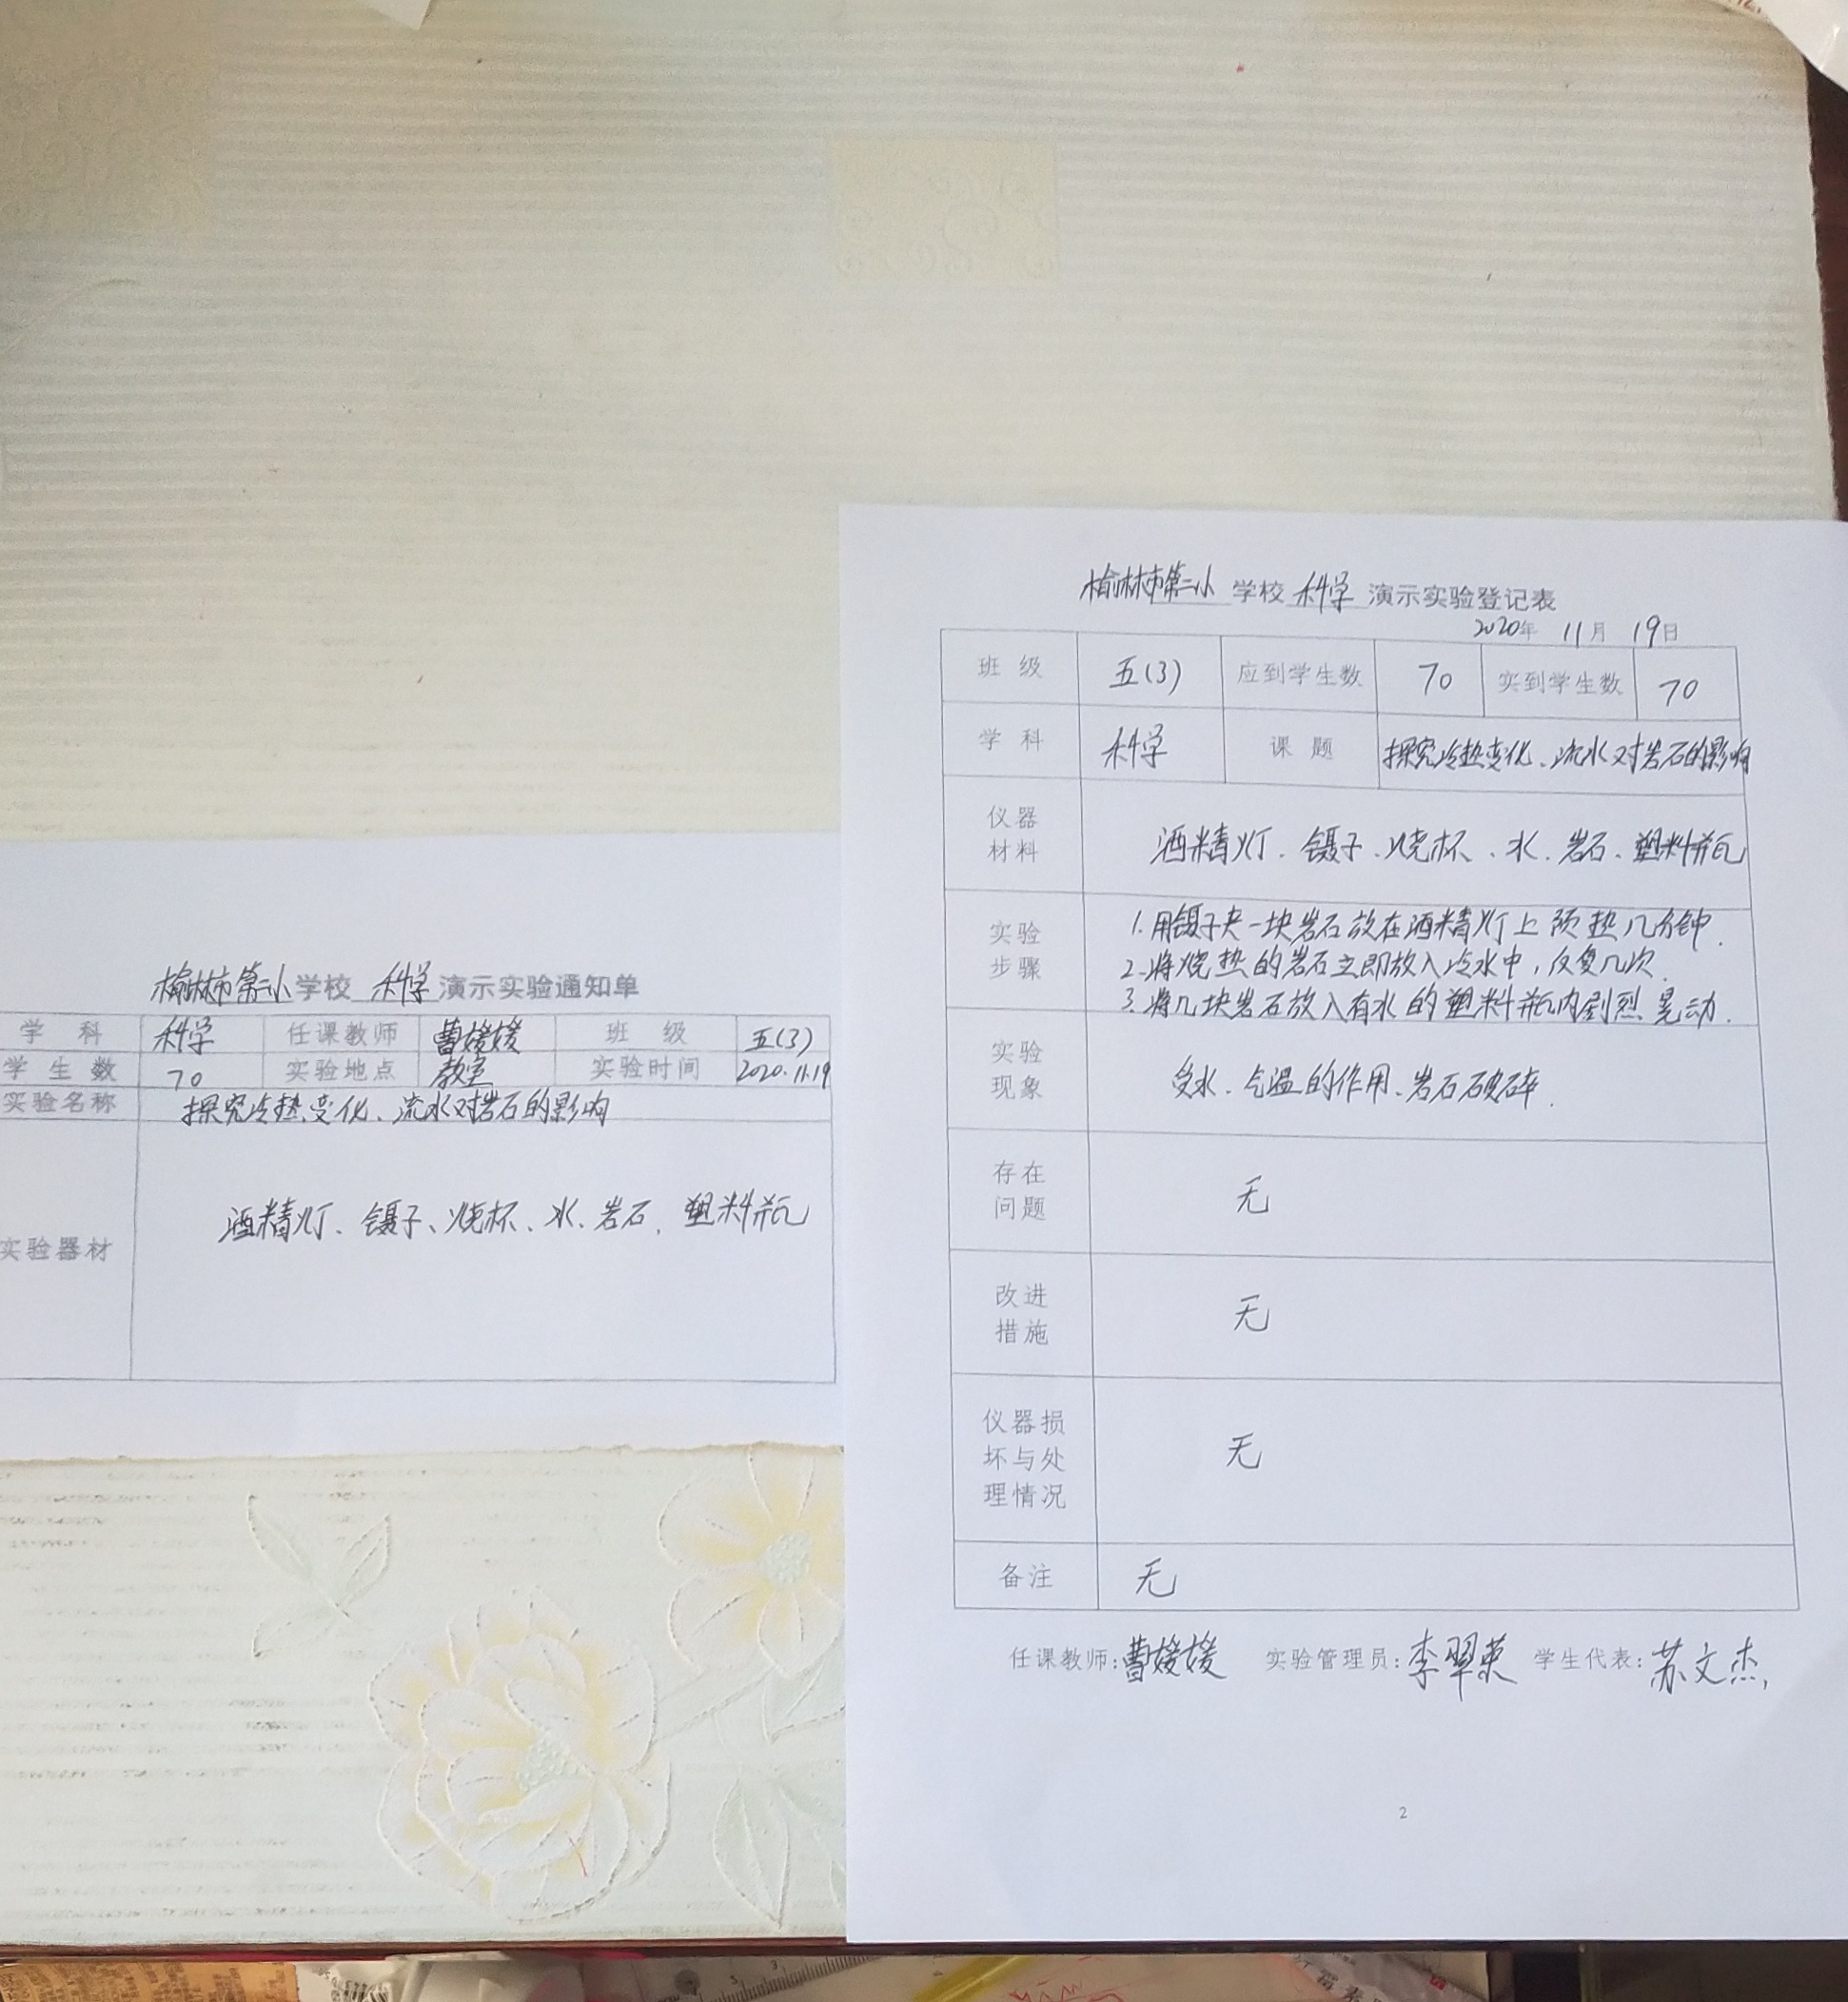 榆林市第二小学校 科学 演示实验通知单
学科 科学 任课教师 曹媛媛 班级 五(3)
学生数 70 实验地点 教室 实验时间 2020.11.19
实验名称 探究冷热变化、流水对岩石的影响
实验器材 酒精灯、镊子、烧杯、水、岩石、塑料瓶
榆林市第二小 学校 科学 演示实验登记表
2020年 11月 19日
班级 五(3) 应到学生数 70 实到学生数 70
学科 科学 课题 探究冷热变化、流水对岩石的影响
仪器
材料
酒精灯、镊子、烧杯、水、岩石、塑料瓶
实验
步骤
1.用镊子夹一块岩石放在酒精灯上预热几分钟.
2.将烧热的岩石立即放入冷水中,反复几次.
3.将几块岩石放入有水的塑料瓶内剧烈晃动.
实验
现象
受水、气温的作用、岩石破碎.
存在
问题
无
改进
措施
无
仪器损
坏与处
理情况
无
备注 无
任课教师:曹媛媛 实验管理员:李翠荣 学生代表:苏文杰
2